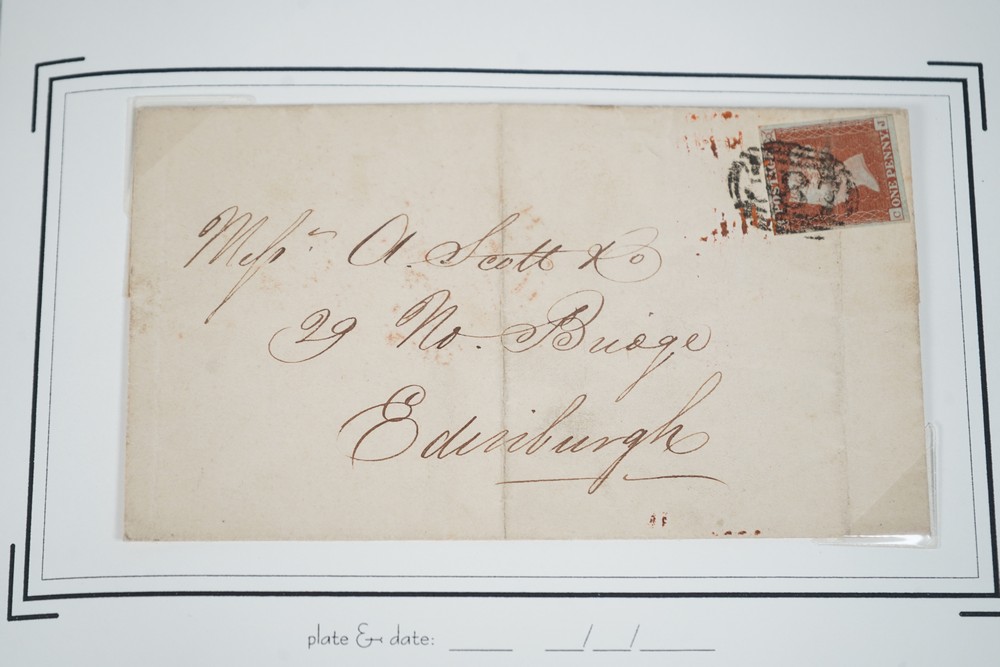 POSTAGE
ONE PENNY
C J
Messrs A. Scott & Co
29 No. Bridge
Edinburgh
plate & date: ____ __/__/____